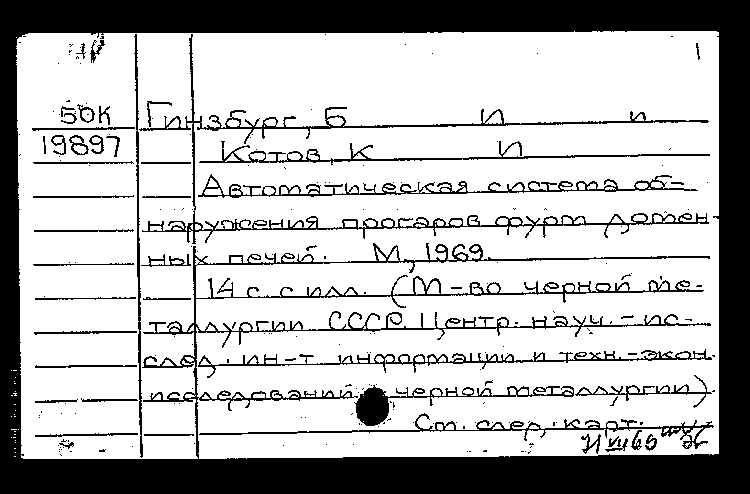 1
50К Гинзбург, Б И и
19897 Котов, К И
Автоматическая система об-
наружения прогаров фурм домен-
ных печей. М., 1969.
14 с. с илл. (М-во черной ме-
таллургии СССР. Центр. науч.-ис-
след. ин-т информации и техн.-экон.
исследований черной металлургии).
Ст. след. карт.